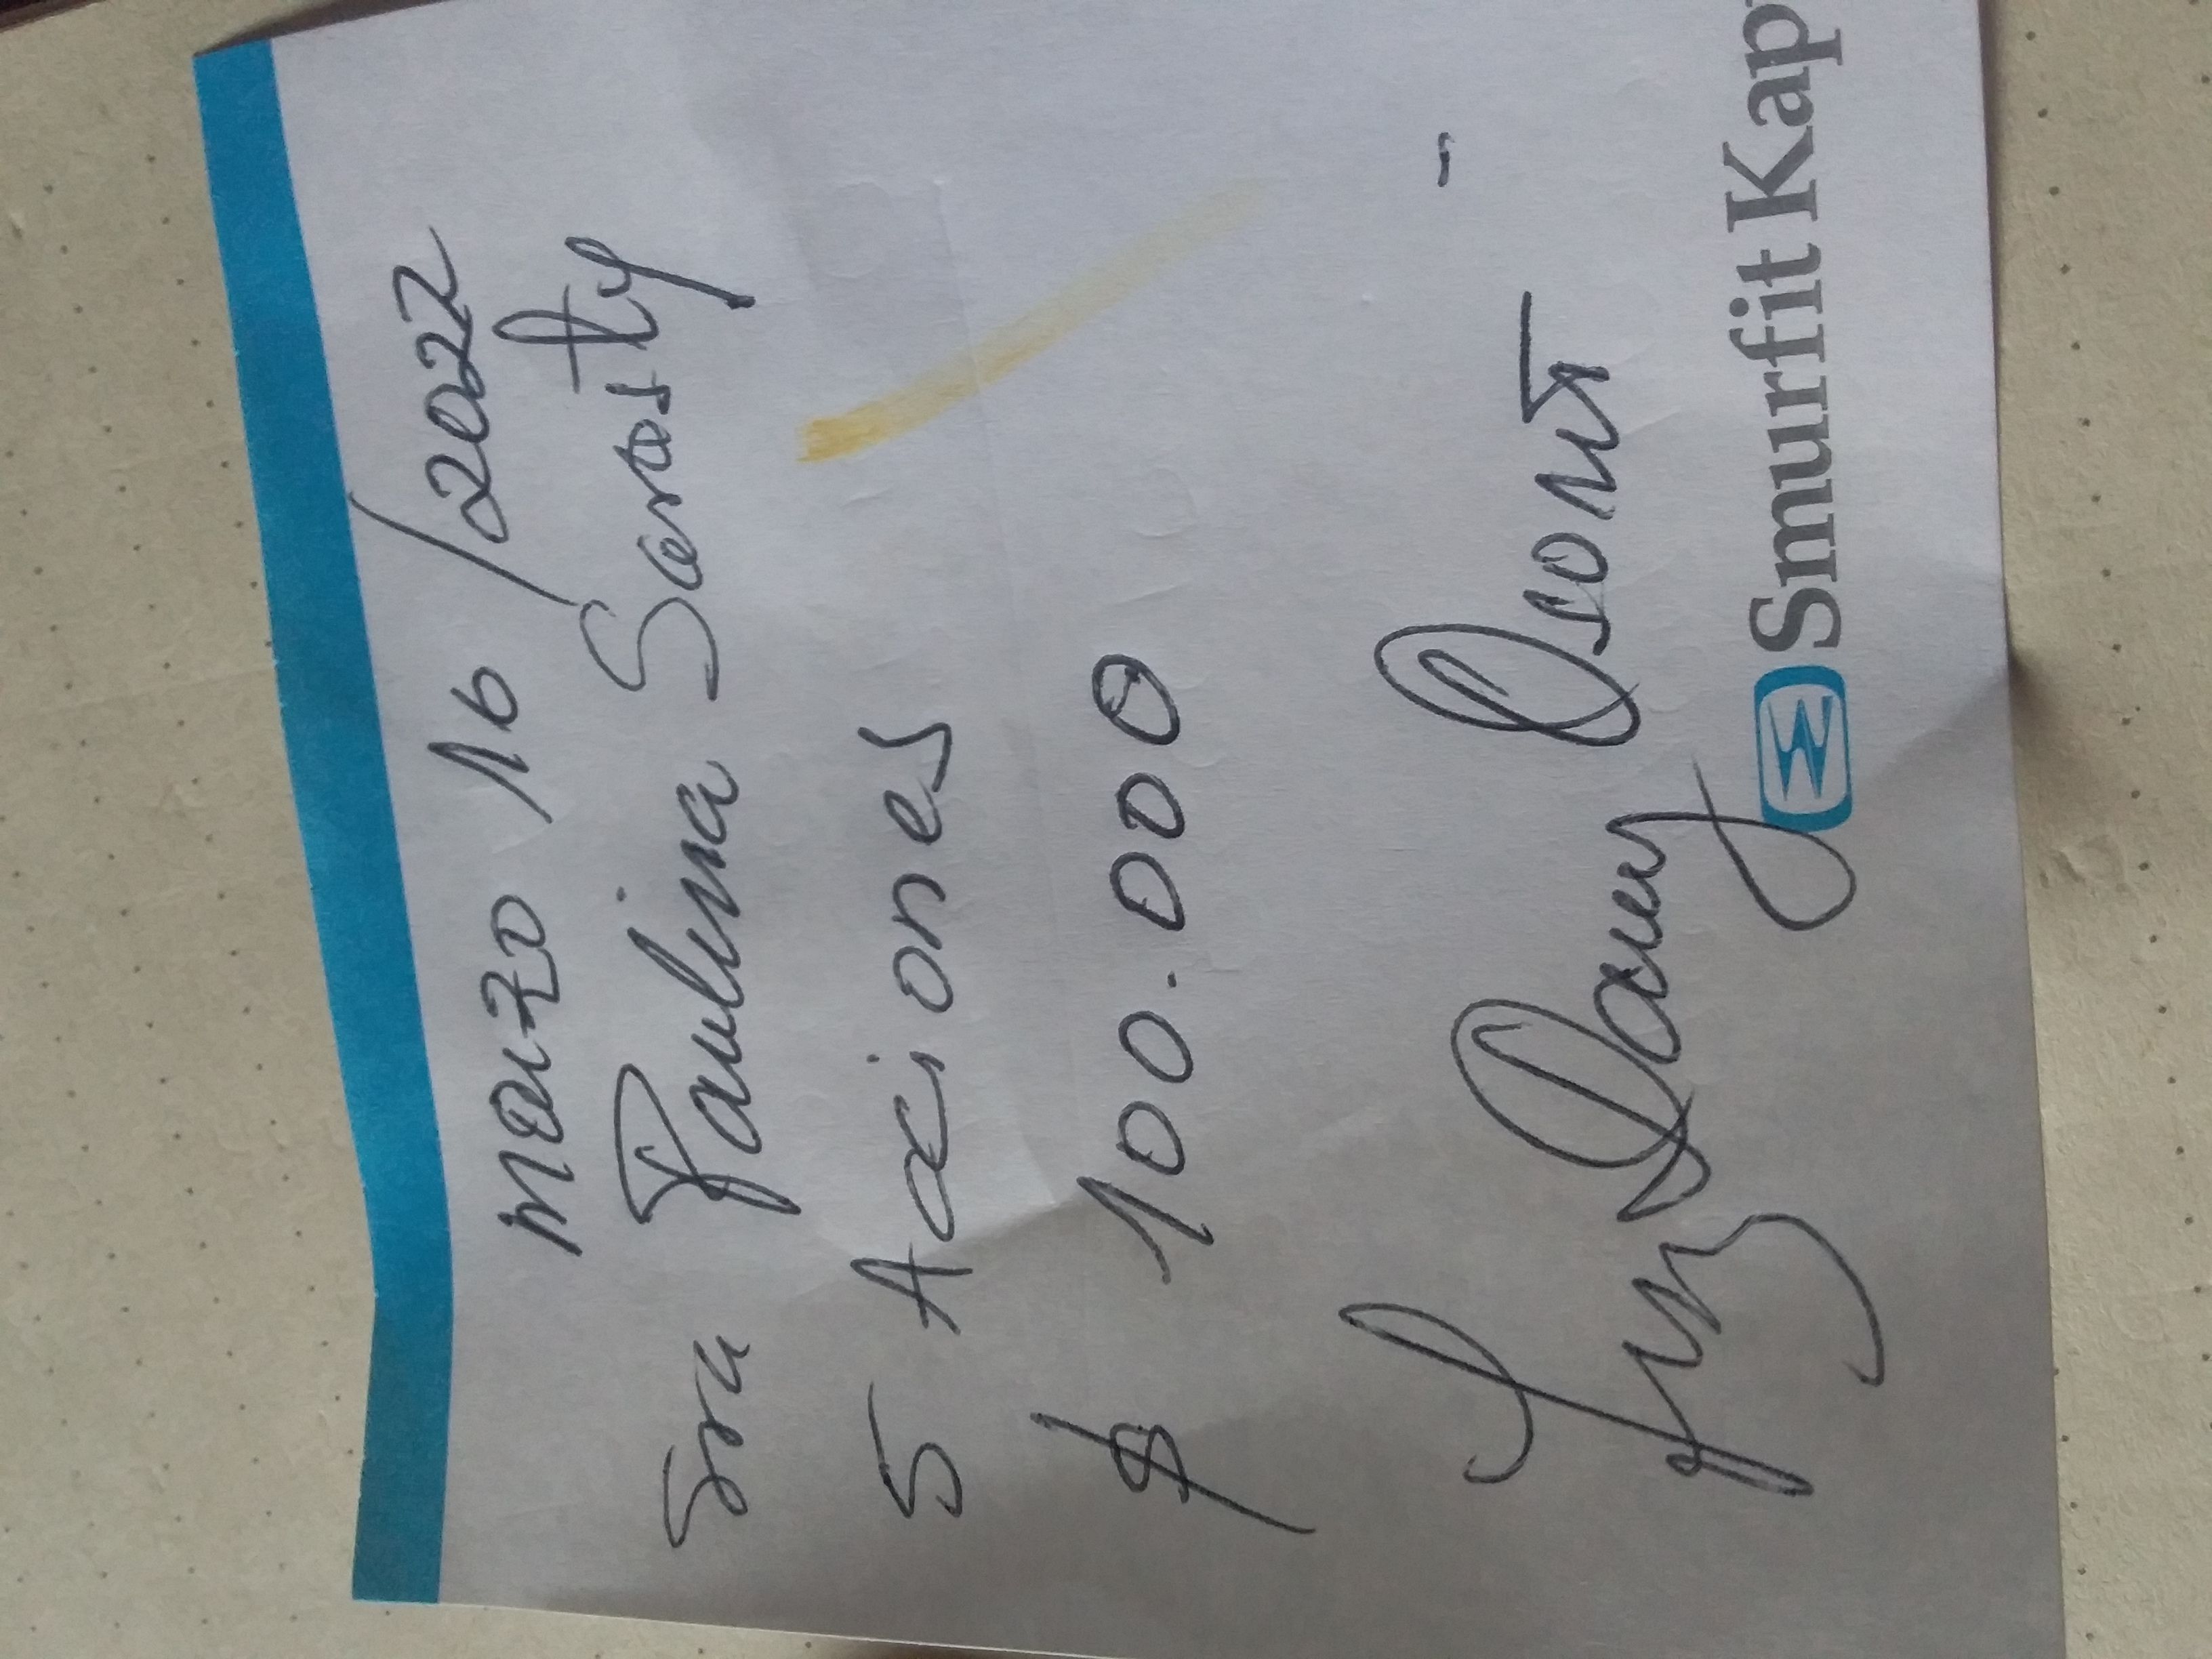 Marzo 16 / 2022
Sra Paulina Sarasty
5 Acciones
$ 100.000
Luz Dary Osorio
Smurfit Kap